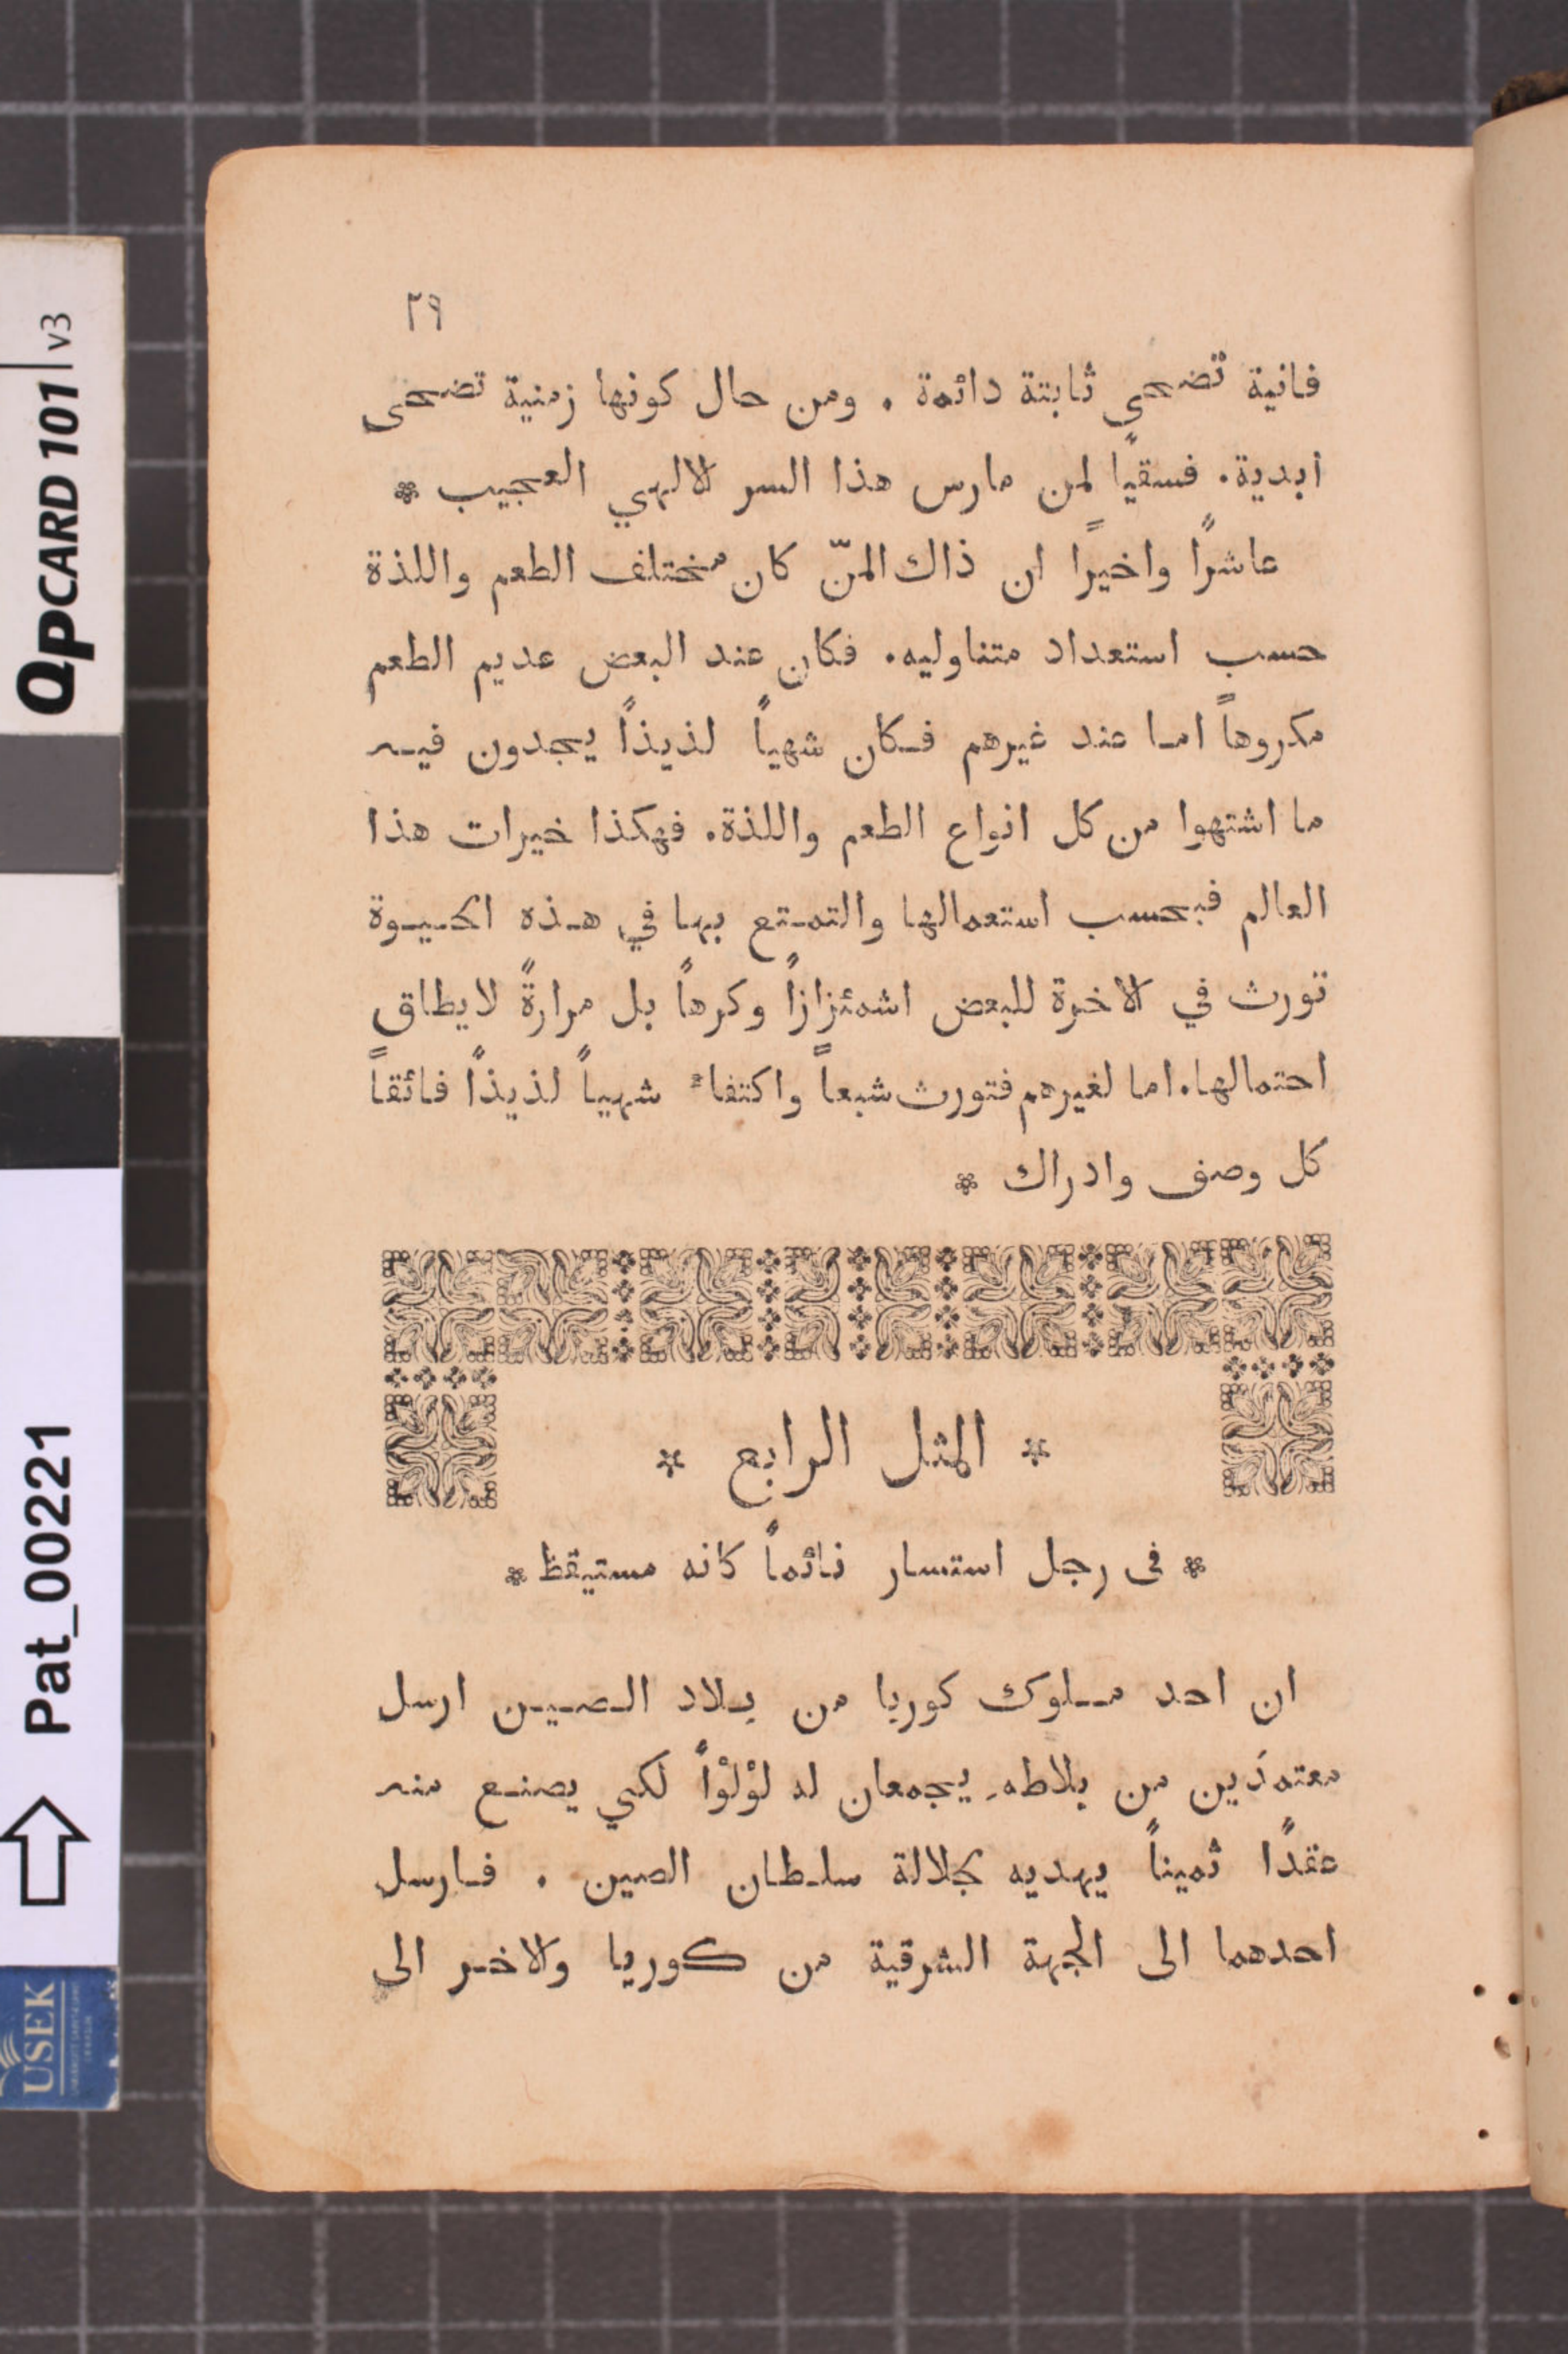 ٢٩
فانية تضحى ثابتة دائمة . ومن حال كونها زمنية تضحى
ابدية. فسقيًا لمن مارس هذا السر الالهي العجيب *
عاشرًا واخيرًا ان ذاك المنّ كان مختلف الطعم واللذة
حسب استعداد متناوليه. فكان عند البعض عديم الطعم
مكروهاً امـا عند غيرهم فـكان شهياً لذيذاً يجدون فيـه
ما اشتهوا من كل انواع الطعم واللذة. فهكذا خيرات هذا
العالم فبحسب استعمالها والتمـتع بها في هـذه الحـيـوة
تورث في الاخرة للبعض اشمئزازاً وكرهاً بل مرارةً لايطاق
احتمالها. اما لغيرهم فتورث شبعاً واكتفاءً شهياً لذيذاً فائقاً
كل وصف وادراك *
* المثل الرابع *
* فى رجل استسار نائماً كانه مستيقظ *
ان احد مـلوك كوريا من بـلاد الـصـيـن ارسل
معتمدَين من بلاطهِ يجمعان له لؤلؤاً لكي يصنـع منـه
عقدًا ثميناً يهديه لجلالة سلـطـان الصين . فـارسل
احدهما الى الجهة الشرقية من كوريا والاخـر الى
QPCARD 101 v3
Pat_00221
USEK